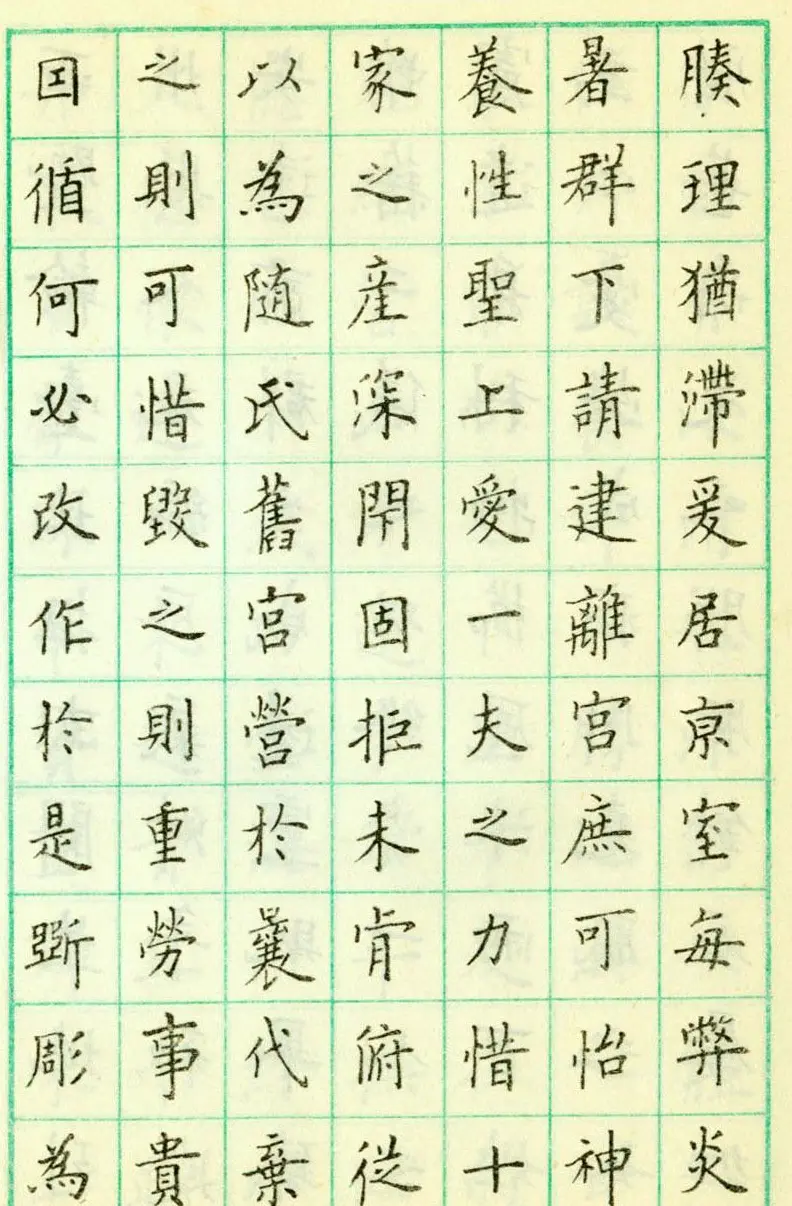 腠理猶滯爰居京室每弊炎
暑群下請建離宮庶可怡神
養性聖上愛一夫之力惜十
家之産深閇固拒未肯俯從
以為随氏舊宮營於曩代棄
之則可惜毀之則重勞事貴
因循何必改作於是斲彫為